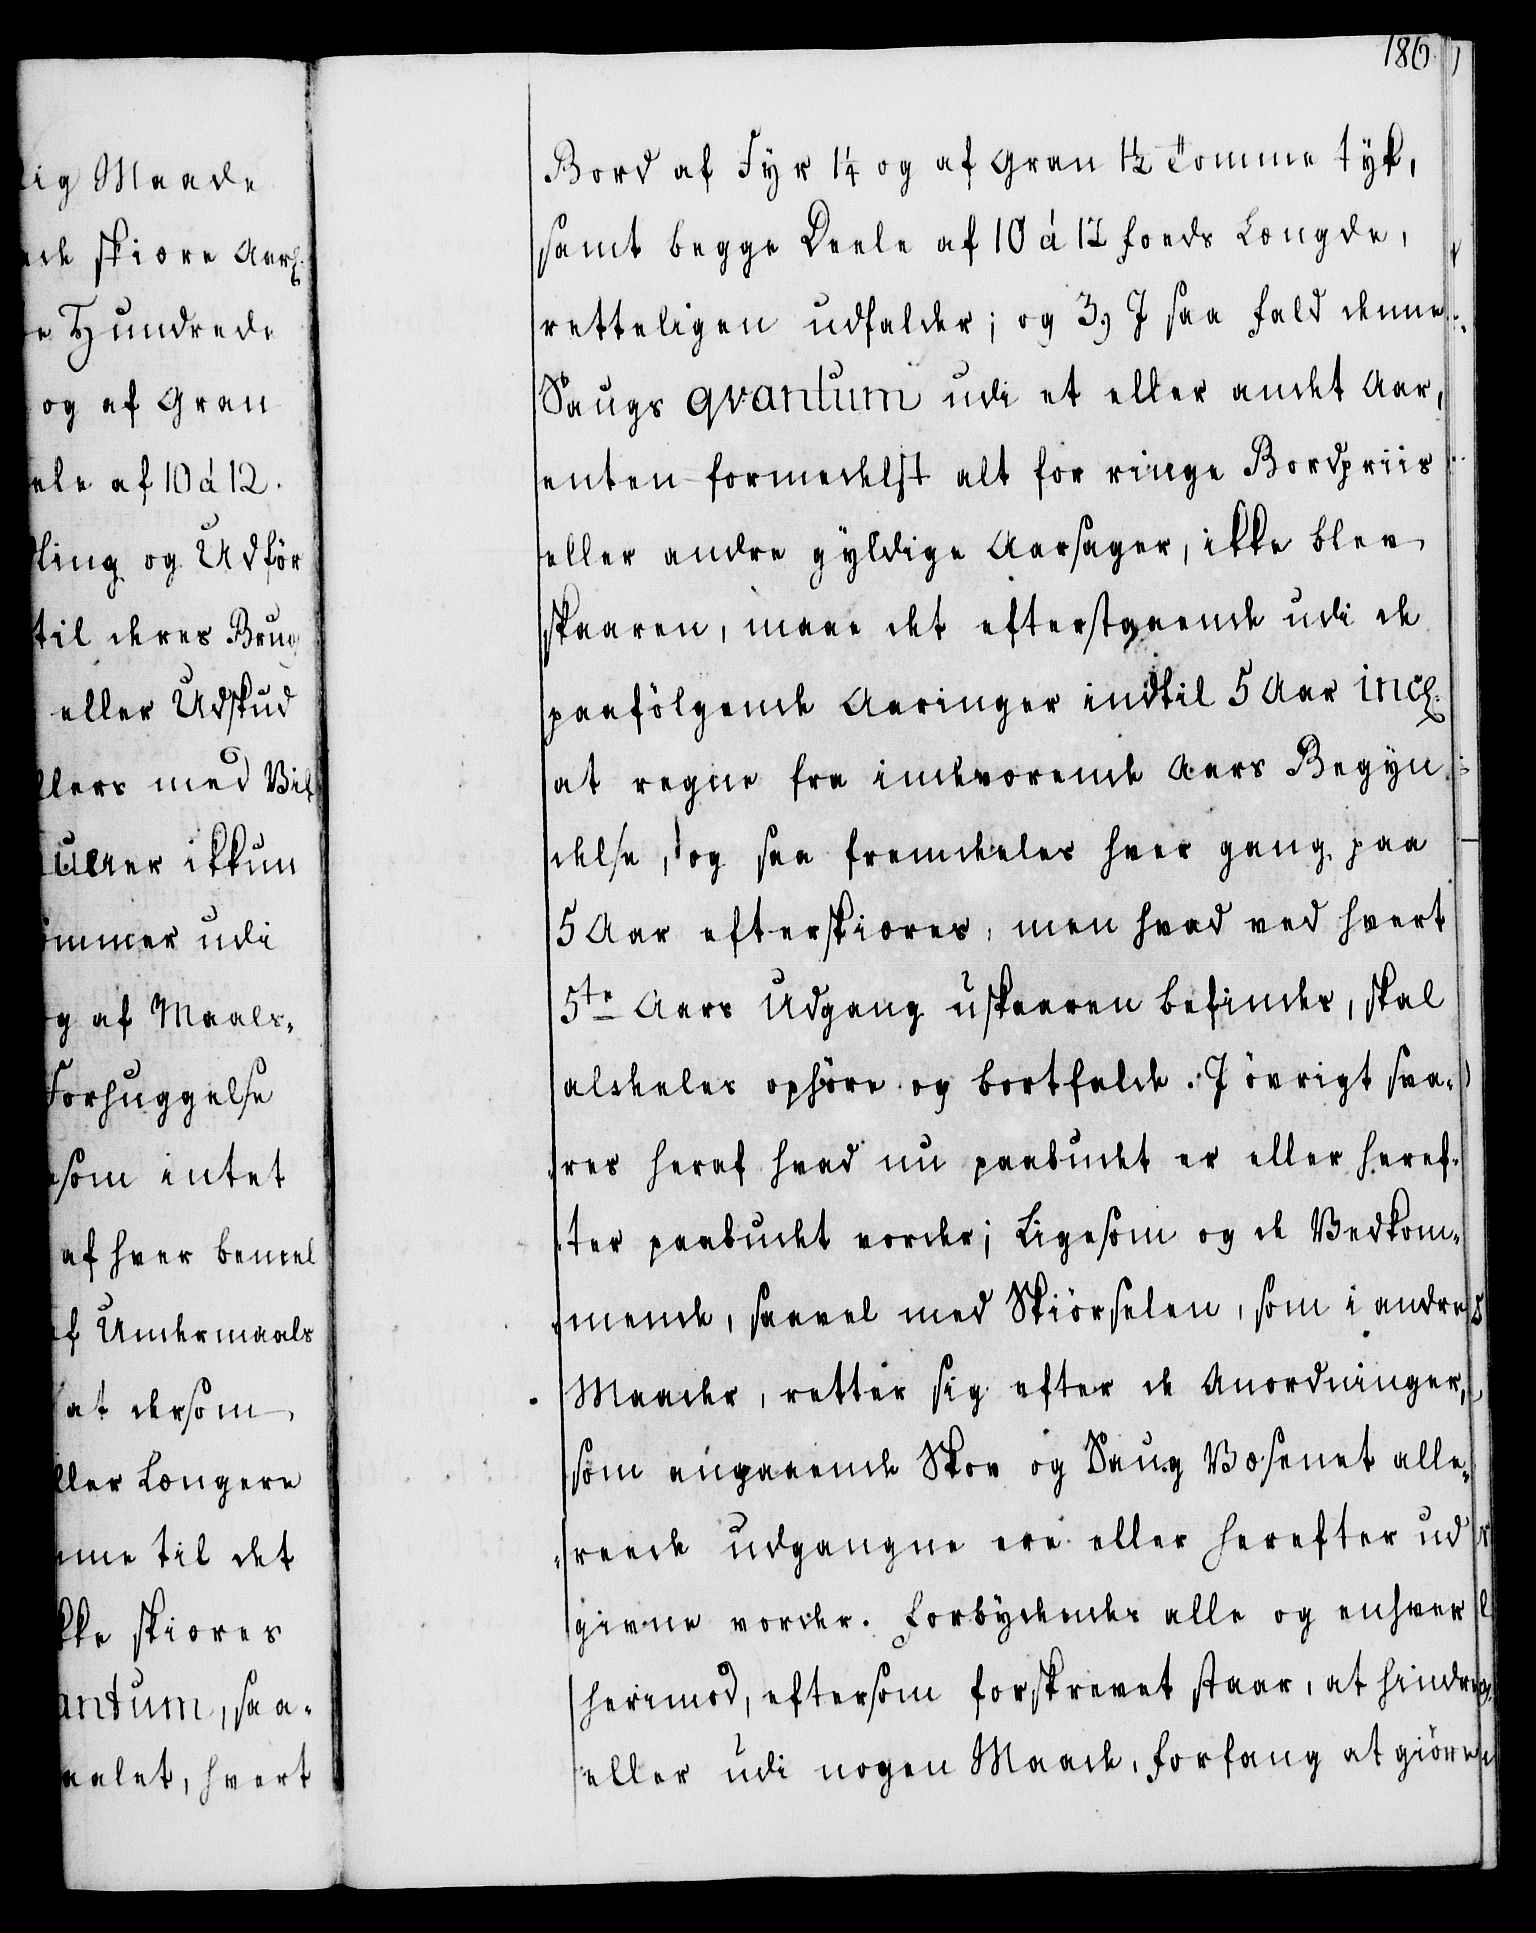 186.
lig Maade
nde skiære Aarl.
e Hundrede
og af Gran
ele af 10 á 12.
ling og Udför
til deres Brug
eller Udskud
llers med Vil
ulaer ikkun
ömmer udi
g af Maals-
Forhuggelse
som intet
af hver bemel
f Undermaals
at dersom
ller Længere
mme til det
kke skiæres
antum, saa-
aalet, hvert
Bord af Fyr 1¼ og af Gran 1½ Tomme tyk,
samt begge Deele af 10 á 12 foeds Længde,
retteligen udfalder; og 3.) I saa fald denne
Saugs qvantum udi et eller andet Aar,
enten formedelst alt for ringe Bordpriis
eller andre gyldige Aarsager, ikke blev
skaaren, maae det efterstaaende udi de
paafölgende Aaringer indtil 5 Aar incl.
at regne fra indeværende Aars Begyn
delse, og saa fremdeeles hver gang paa
5 Aar efterskiæres, men hvad ved hvert
5te Aars Udgang uskaaren befindes, skal
aldeeles ophöre og bortfalde. I övrigt sva-
res heraf hvad nu paabudet er eller heref-
ter paabudet vorder; Ligesom og de Vedkom-
mende, saavel med Skiörselen, som i andre
Maader, retter sig efter de Anordninger,
som angaaende Skov og Saug Væsenet alle-
reede udgangne ere eller herefter ud
givne vorder. Forbydendes alle og enhver
herimod, eftersom forskrevet staar, at hindre
eller udi nogen Maade, forfang at giöre